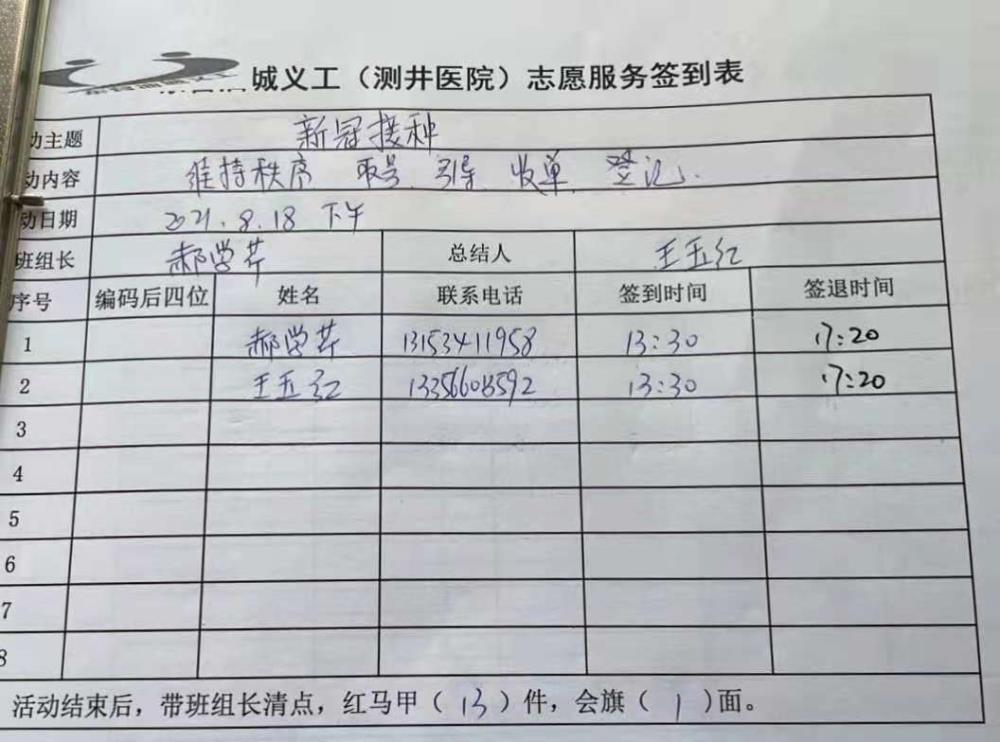 城义工（测井医院）志愿服务签到表
动主题 新冠接种
动内容 维持秩序 取号、引导、收单、登记.
动日期 2021.8.18 下午
班组长 郝学芹 总结人 王玉红
序号 编码后四位 姓名 联系电话 签到时间 签退时间
1 郝学芹 13153411958 13:30 17:20
2 王玉红 13:30 17:20
3
4
5
6
7
8
活动结束后，带班组长清点，红马甲（13）件，会旗（1）面。